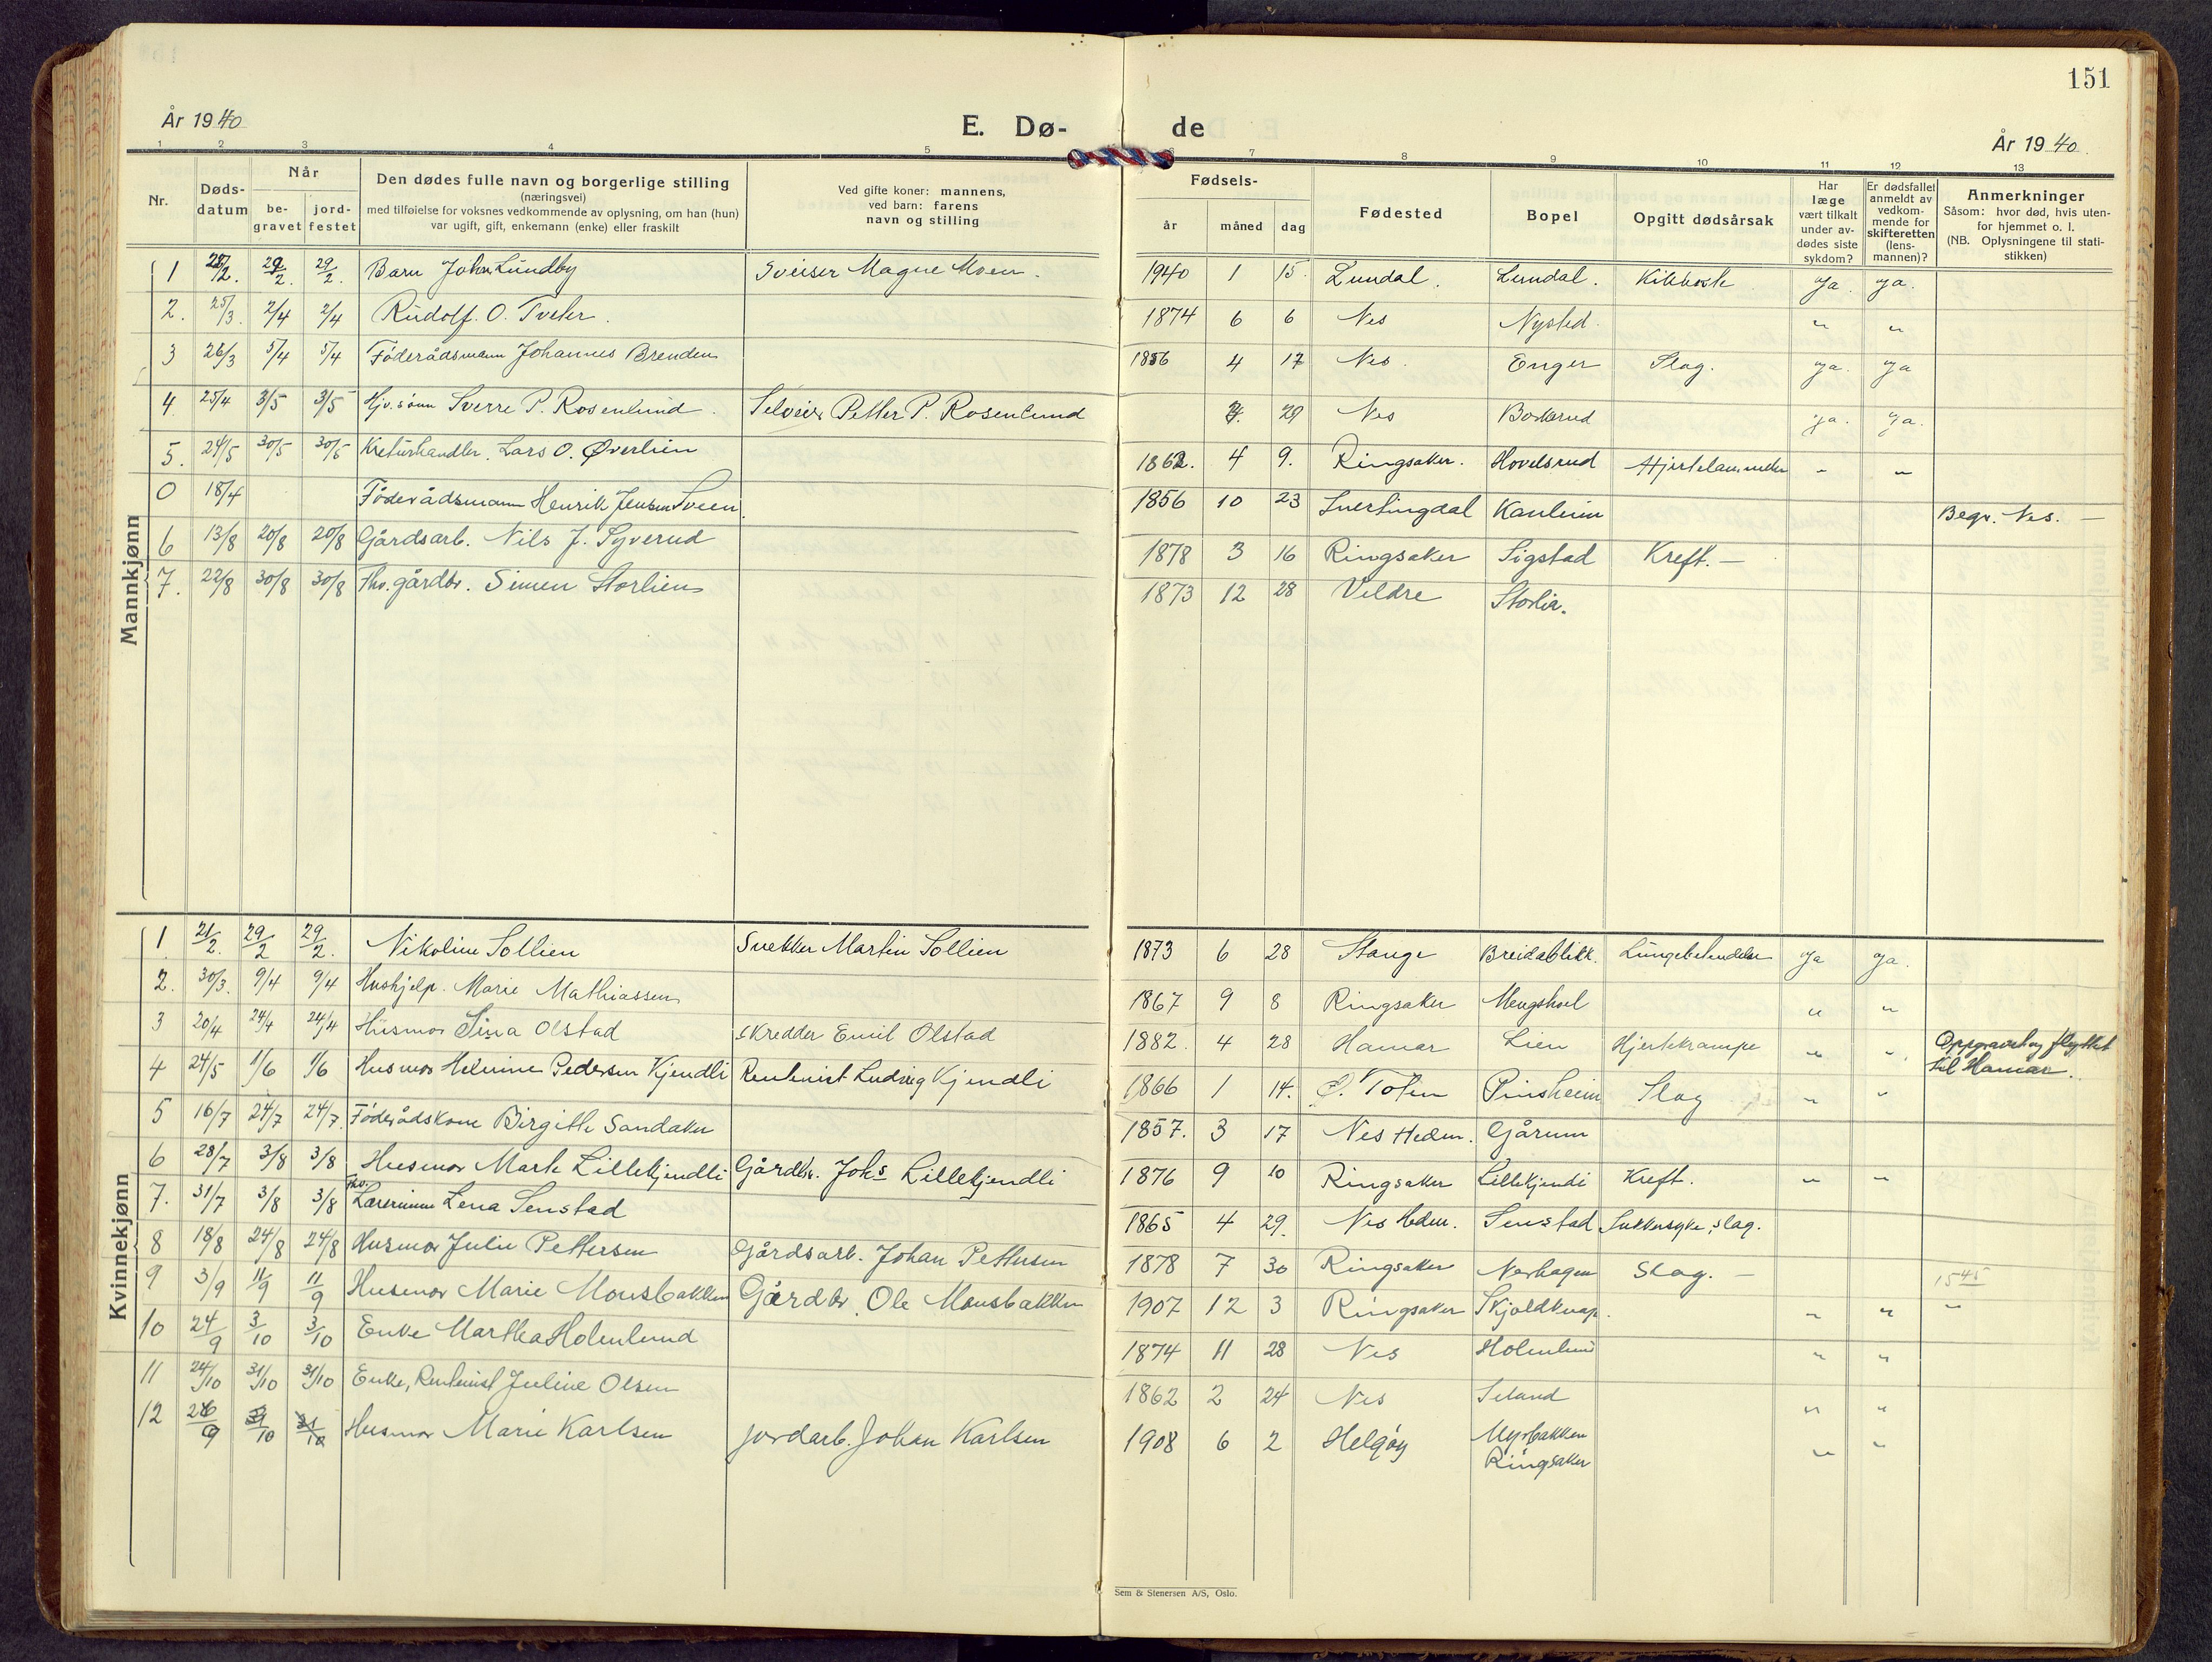 151
År 1940
E. Dø-
de
År 1940.
1 2 3 4 5 6 7 8 9 10 11 12 13
Nr.
Døds-
datum
Når
be-
gravet
jord-
festet
Den dødes fulle navn og borgerlige stilling
(næringsvei)
med tilføielse for voksnes vedkommende av oplysning, om han (hun)
var ugift, gift, enkemann (enke) eller fraskilt
Ved gifte koner: mannens,
ved barn: farens
navn og stilling
Fødsels-
år måned dag
Fødested
Bopel
Opgitt dødsårsak
Har
læge
vært tilkalt
under av-
dødes siste
sykdom?
Er dødsfallet
anmeldt av
vedkom-
mende for
skifteretten
(lens-
mannen)?
Anmerkninger
Såsom: hvor død, hvis uten-
for hjemmet o. l.
(NB. Oplysningene til stati-
stikken)
Mannkjønn
1 29/2. 29/2. Barn Johan Lundby Sveiser Magne Moen. 1940 1 15 Lundal. Lundal. Kikhoste Ja. Ja.
2. 25/3. 2/4 2/4 Rudolf. O. Tveter. 1874 6 6 Nes Nysted. " "
3 26/3 5/4 5/4 Føderådsmann Johannes Brenden 1856 4 17 Nes. Enger Slag. Ja. Ja
4 25/4 3/5 3/5 Hjv. sønn Sverre P. Rosenlund. Selveier Petter P. Rosenlund 29 Nes Ja. Ja.
5. 24/5 30/5 30/5 Kreturhandler. Lars O. Øverlien 1862. 4 9. Ringsaker. Hovelsrud Hjertelammelse " "
0 18/4 Føderådsmann Henrik Jensen Sveen. 1856 10 23 Snertingdal Begr. Nes. —
6 13/8 20/8 20/8 Gårdsarb. Nils J. Syverud 1878 3 16 Ringsaker Sigstad Kreft. —
7. 22/8 30/8 30/8 Fhv. gårdbr. Simen Storlien 1873 12 28 Veldre Storlia.
Kvinnekjønn
1 21/2. 29/2 29/2. Nikoline Sollien Snekker Martin Sollien 1873 6 28 Stange Breidablikk. Lungebetendelse Ja Ja.
2. 30/3. 9/4 9/4 Hushjelp. Marie Mathiassen 1867 9 8 Ringsaker Mengshoel " "
3 20/4 24/4 24/4 Husmor Sina Olstad Skredder Emil Olstad 1882. 4 28 Hamar Lien Hjertekrampe " " Oppgravet og flyttet
til Hamar.
4 24/5 1/6 1/6 Husmor Helmine Pedersen Kjendli Rentenist Ludvig Kjendli 1866 1 14. Ø. Toten Pinsheim Slag " "
5 16/7 24/7 24/7. Føderådskone Birgithe Sandaker 1857. 3 17 Nes Hedm. Gårum
6 28/7 3/8 3/8 Husmor Marte Lillekjendli Gårdbr. Johs Lillekjendli 1876 9 10 Ringsaker Lillekjendli Kreft. " "
7. 31/7 3/8 3/8 Fhv. Lærerinne Lena Senstad 1865 4 29. Nes Hedm. Senstad Sukkersyke, slag.
8 18/8 24/8 24/8 Husmor Julie Pettersen Gårdsarb. Johan Pettersen 1878 7 30 Ringsaker Nerhagen Slag. —
9 3/9 11/9 11/9 Husmor Marie Monsbakken Gårdbr. Ole Monsbakken 1907 12 3 Ringsaker Skjoldknap. " " 1545
10 24/9 3/10 3/10 Enke Martha Holmlund 1874 11 28 Nes Holmlund " "
11 24/10 31/10 31/10 Enke, Rentenist Juline Olsen 1862 2 24 Nes Seland " "
12 26/9 Husmor Marie Karlsen Jordarb. Johan Karlsen 1908 6 2 Helgøy Myrbakken
Ringsaker " "
Sem & Stenersen A/S, Oslo.